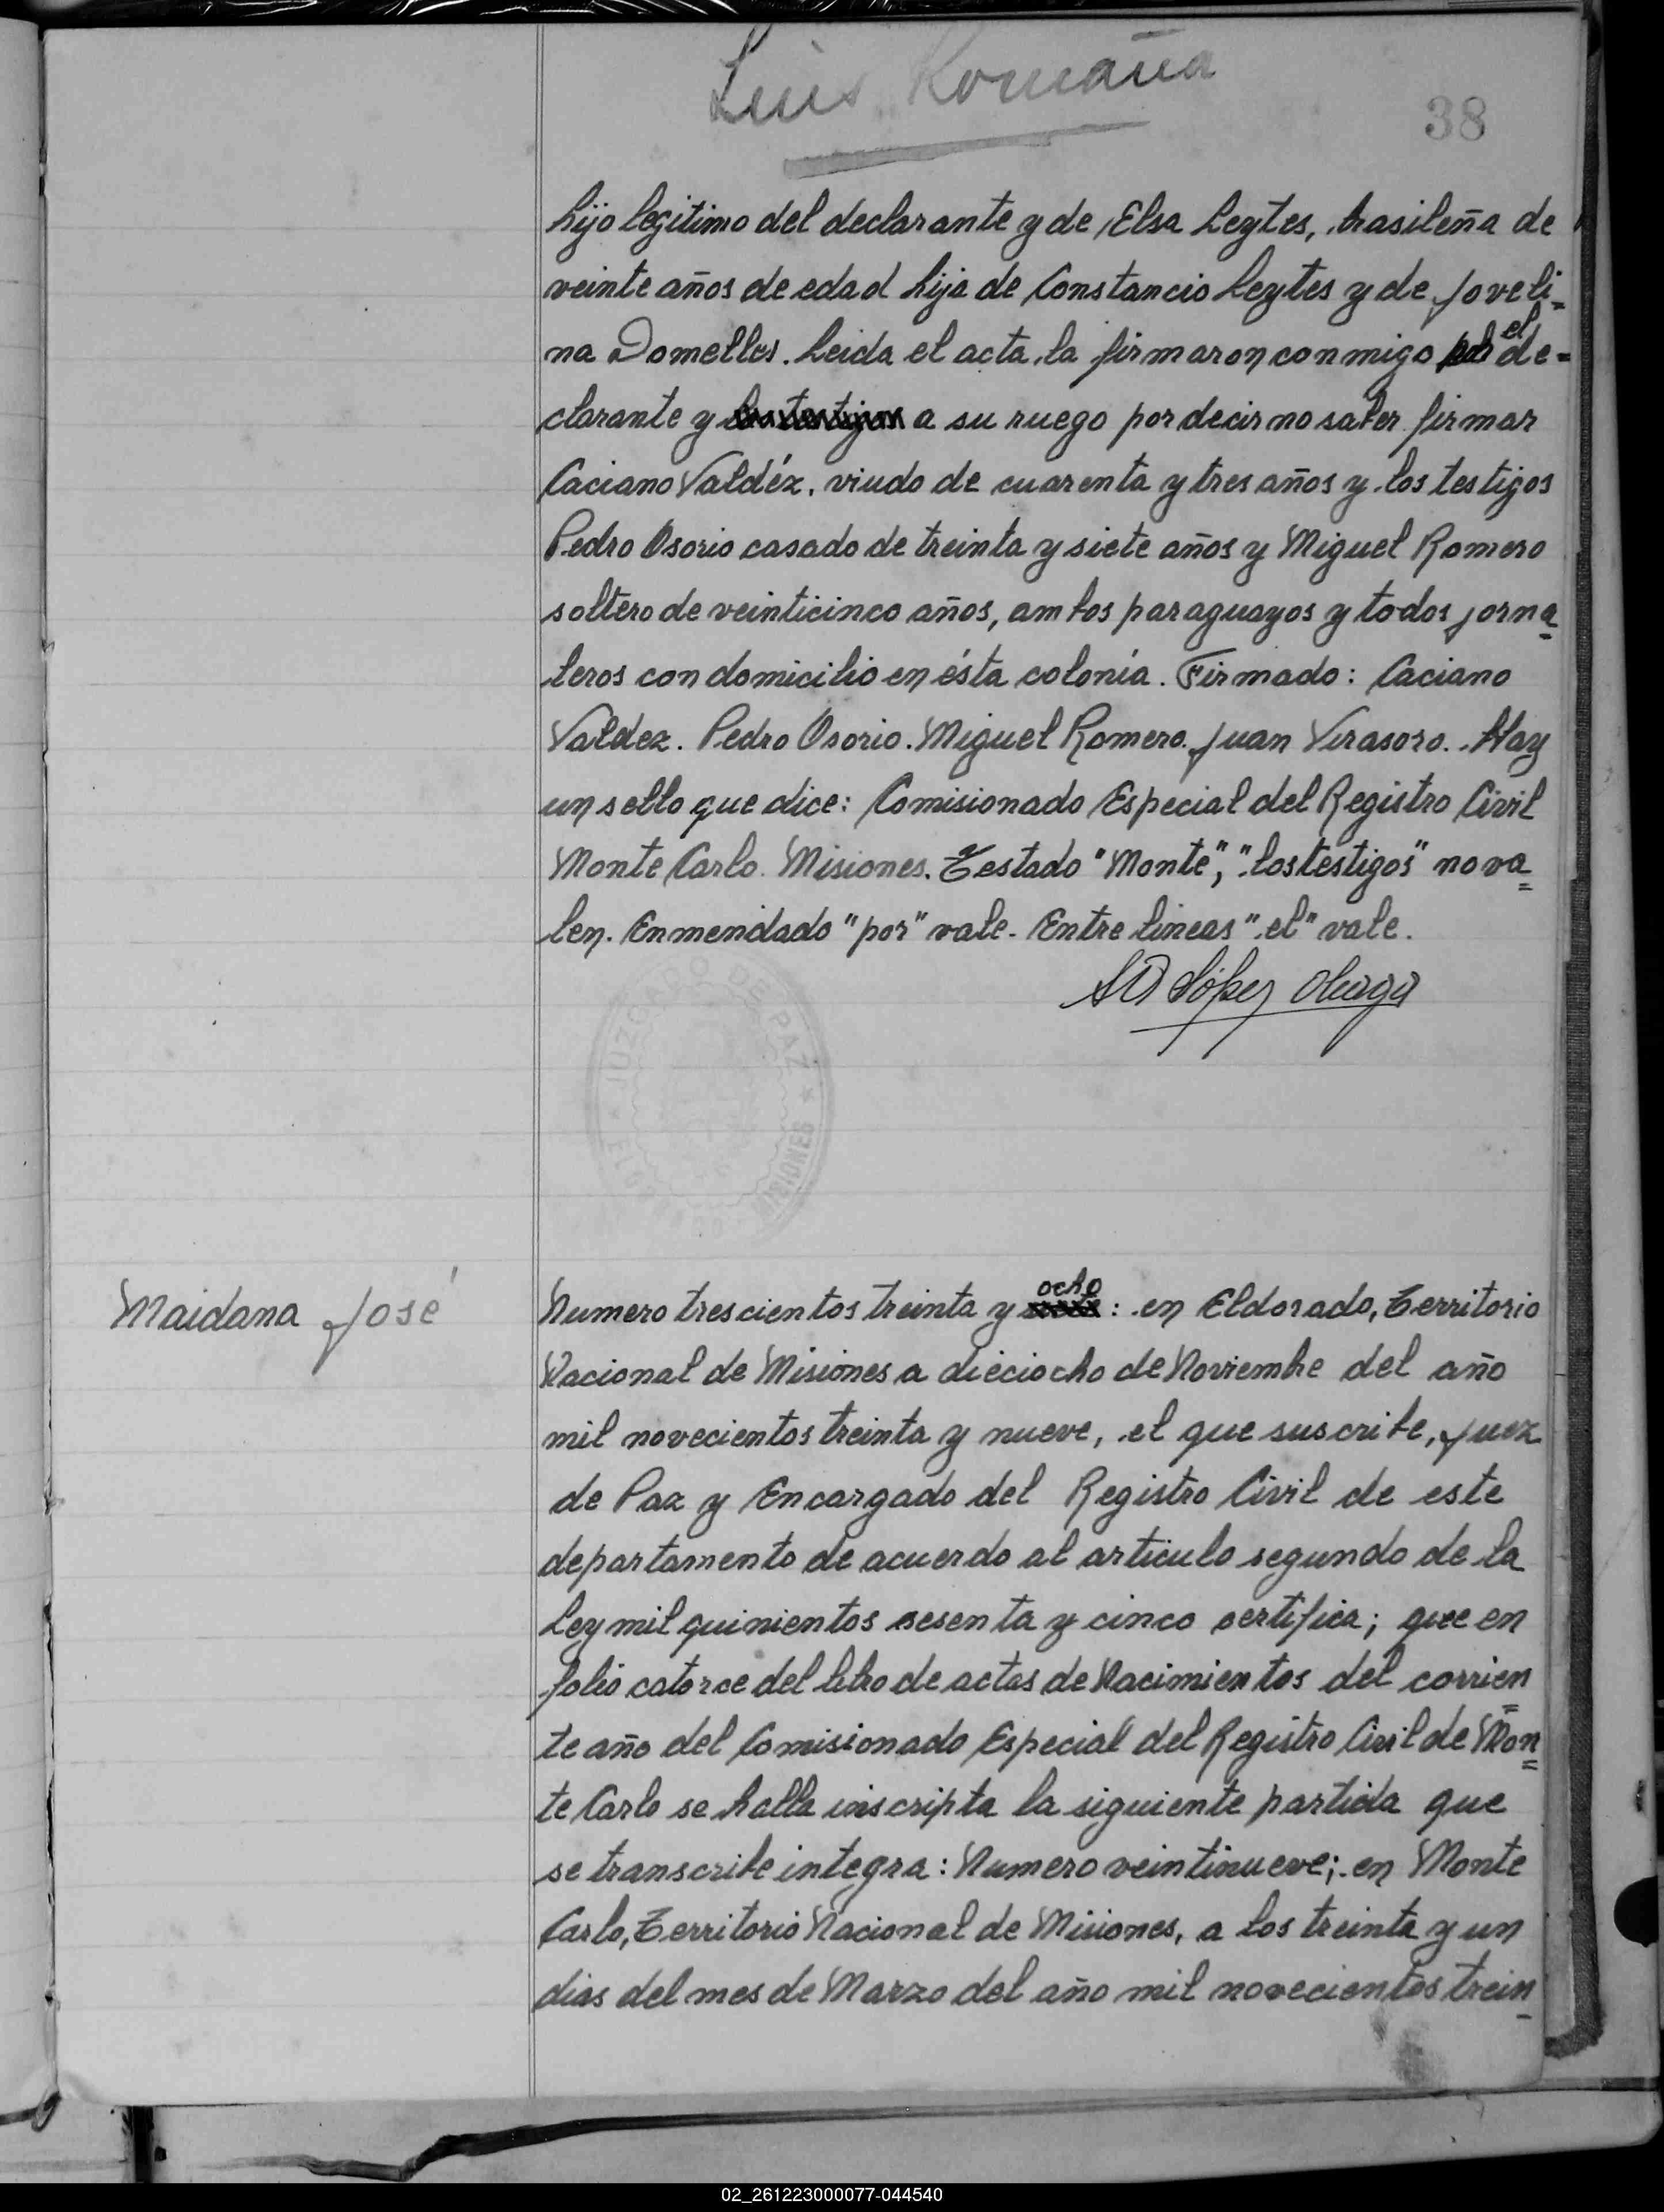 Luis Romaña
38
hijo legitimo del declarante y de Elsa Leytes, brasileña de
veinte años de edad hija de Constancio Leytes y de Joveli=
na Domelles. Leida el acta, la firmaron conmigo por el de=
clarante y los testigos a su ruego por decir no saber firmar
Caciano Valdéz, viudo de cuarenta y tres años y los testigos
Pedro Osorio casado de treinta y siete años y Miguel Romero
soltero de veinticinco años, ambos paraguayos y todos jorna
leros con domicilio en ésta colonia. Firmado: Caciano
Valdez. Pedro Osorio. Miguel Romero. Juan Virasoro. Hay
un sello que dice: Comisionado Especial del Registro Civil
Monte Carlo. Misiones. Testado "Monte", "los testigos" no va=
len. Enmendado "por" vale. Entre lineas "el" vale.
JUZGADO DE PAZ
MISIONES
Maidana José
Numero trescientos treinta y ocho : en Eldorado, Territorio
Nacional de Misiones a dieciocho de Noviembre del año
mil novecientos treinta y nueve, el que suscribe, Juez
de Paz y Encargado del Registro Civil de este
departamento de acuerdo al articulo segundo de la
Ley mil quinientos sesenta y cinco certifica; que en
folio catorce del libro de actas de Nacimientos del corrien=
te año del Comisionado Especial del Registro Civil de Mon=
te Carlo se halla inscripta la siguiente partida que
se transcribe integra: Numero veintinueve; en Monte
Carlo, Territorio Nacional de Misiones, a los treinta y un
dias del mes de Marzo del año mil novecientos trein
02_261223000077-044540